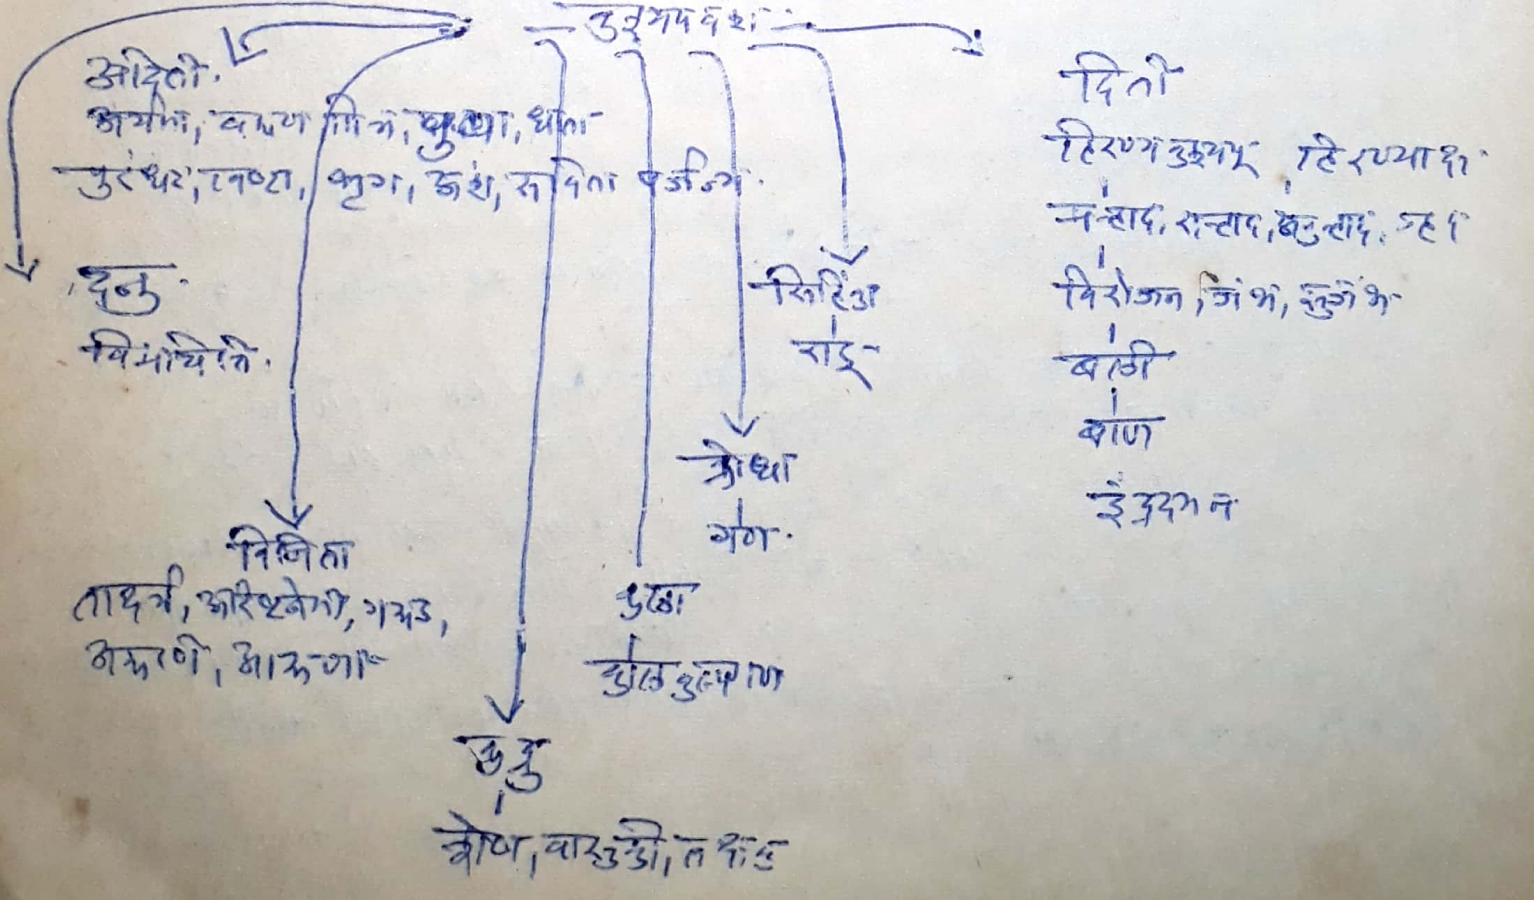 कश्यप वंश
अदिती.
अर्यमा, वरुण मित्र, पुषा, धाता
पुरंधर, त्वष्टा, भृग, अंश, सविता पर्जन्य.
दनु.
विप्रचित्ति.
विनिता
तार्क्ष्य, अरिष्टनेमी, गरुड,
अरूणी, आरूणी
कद्रु
शेष, वासुकी, तक्षक
काला
कालकल्पाण
क्रोधा
गण.
सिंहिका
राहू
दिती
हिरण्यकश्यपू हिरण्याक्ष
प्रल्हाद, सल्हाद, अनुल्हाद, ल्हाद
विरोचन, जंभ, कुजंभ
बली
बाण
इंद्रदमन